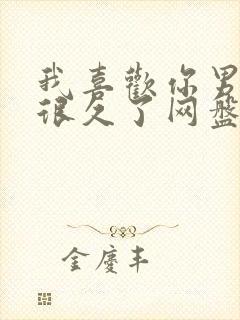 我喜歡你男
很久了网盤
金慶丰